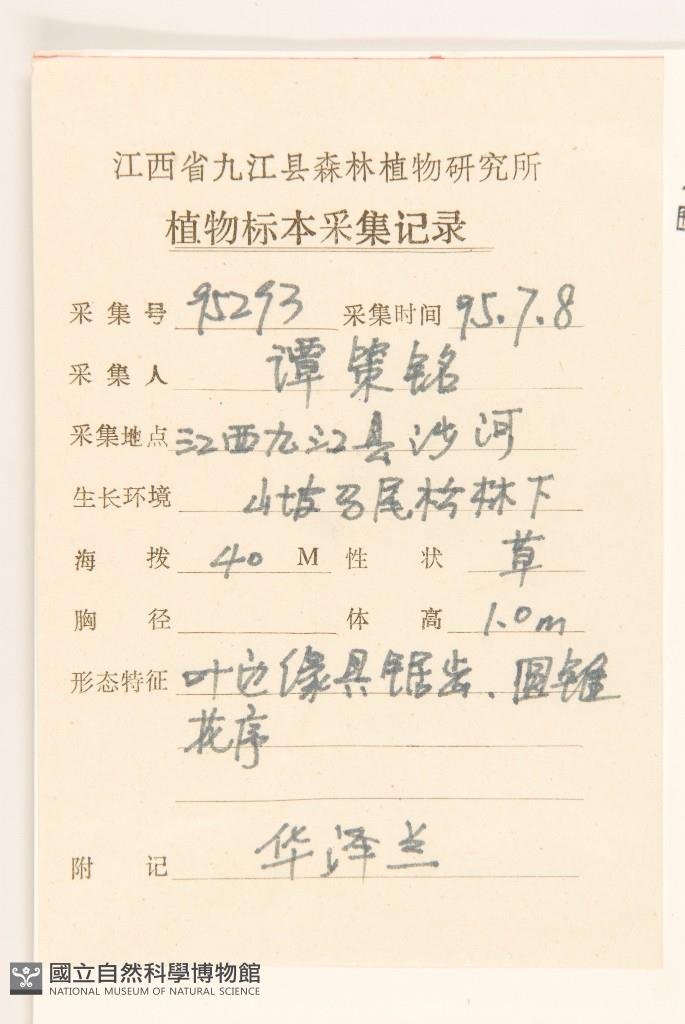 江西省九江县森林植物研究所
植物标本采集记录
采集号 95293 采集时间 95.7.8
采集人 谭策铭
采集地点 江西九江县沙河
生长环境 山坡马尾松林下
海拨 40 M 性状 草
胸径 体高 1.0m
形态特征 叶边缘具锯齿、圆锥
花序
附记 华泽兰
國立自然科學博物館
NATIONAL MUSEUM OF NATURAL SCIENCE